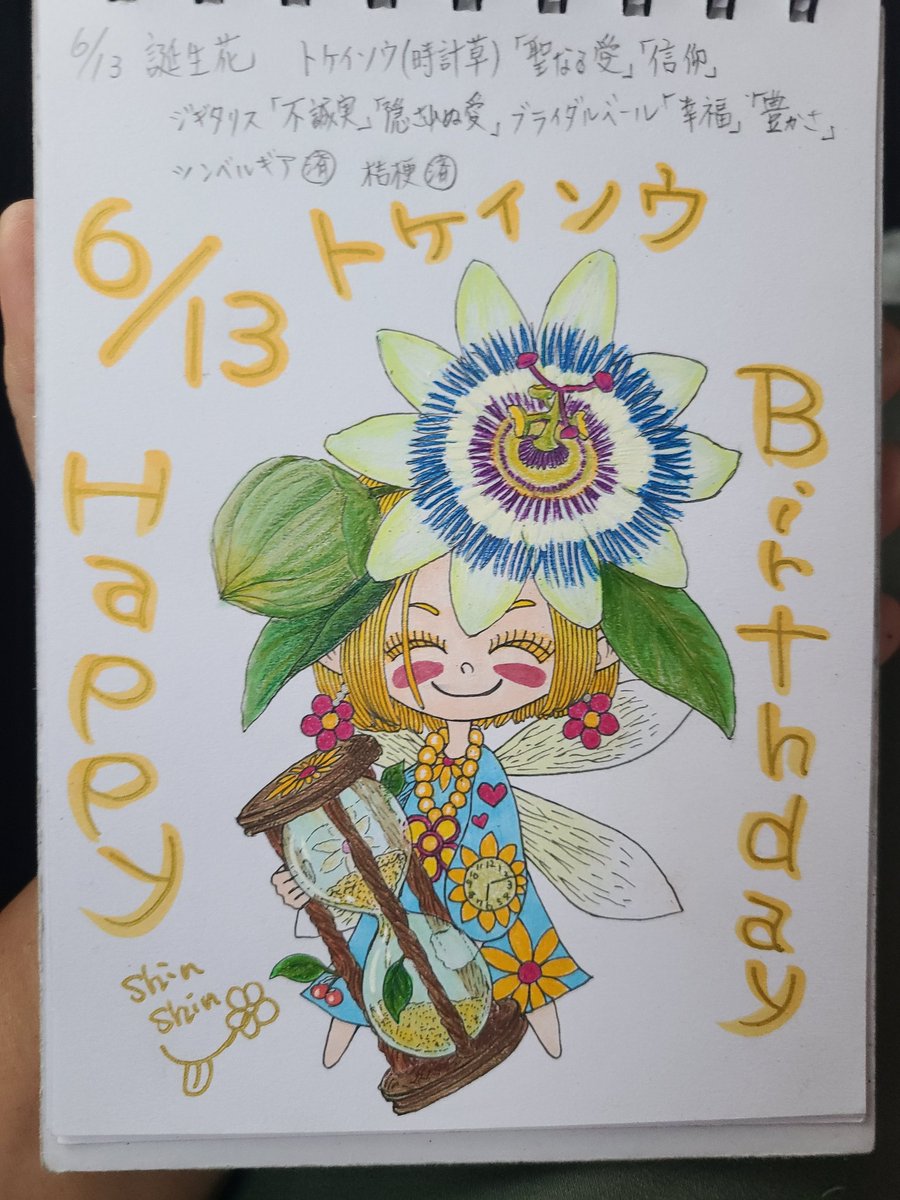 6/13 誕生花 トケイソウ(時計草)「聖なる愛」「信仰」
ジギタリス「不誠実」「隠されぬ愛」ブライダルベール「幸福」「豊かさ」
ツンベルギア㊡ 桔梗㊡
6/13
トケイソウ
Happy
Birthday
Shin
Shin